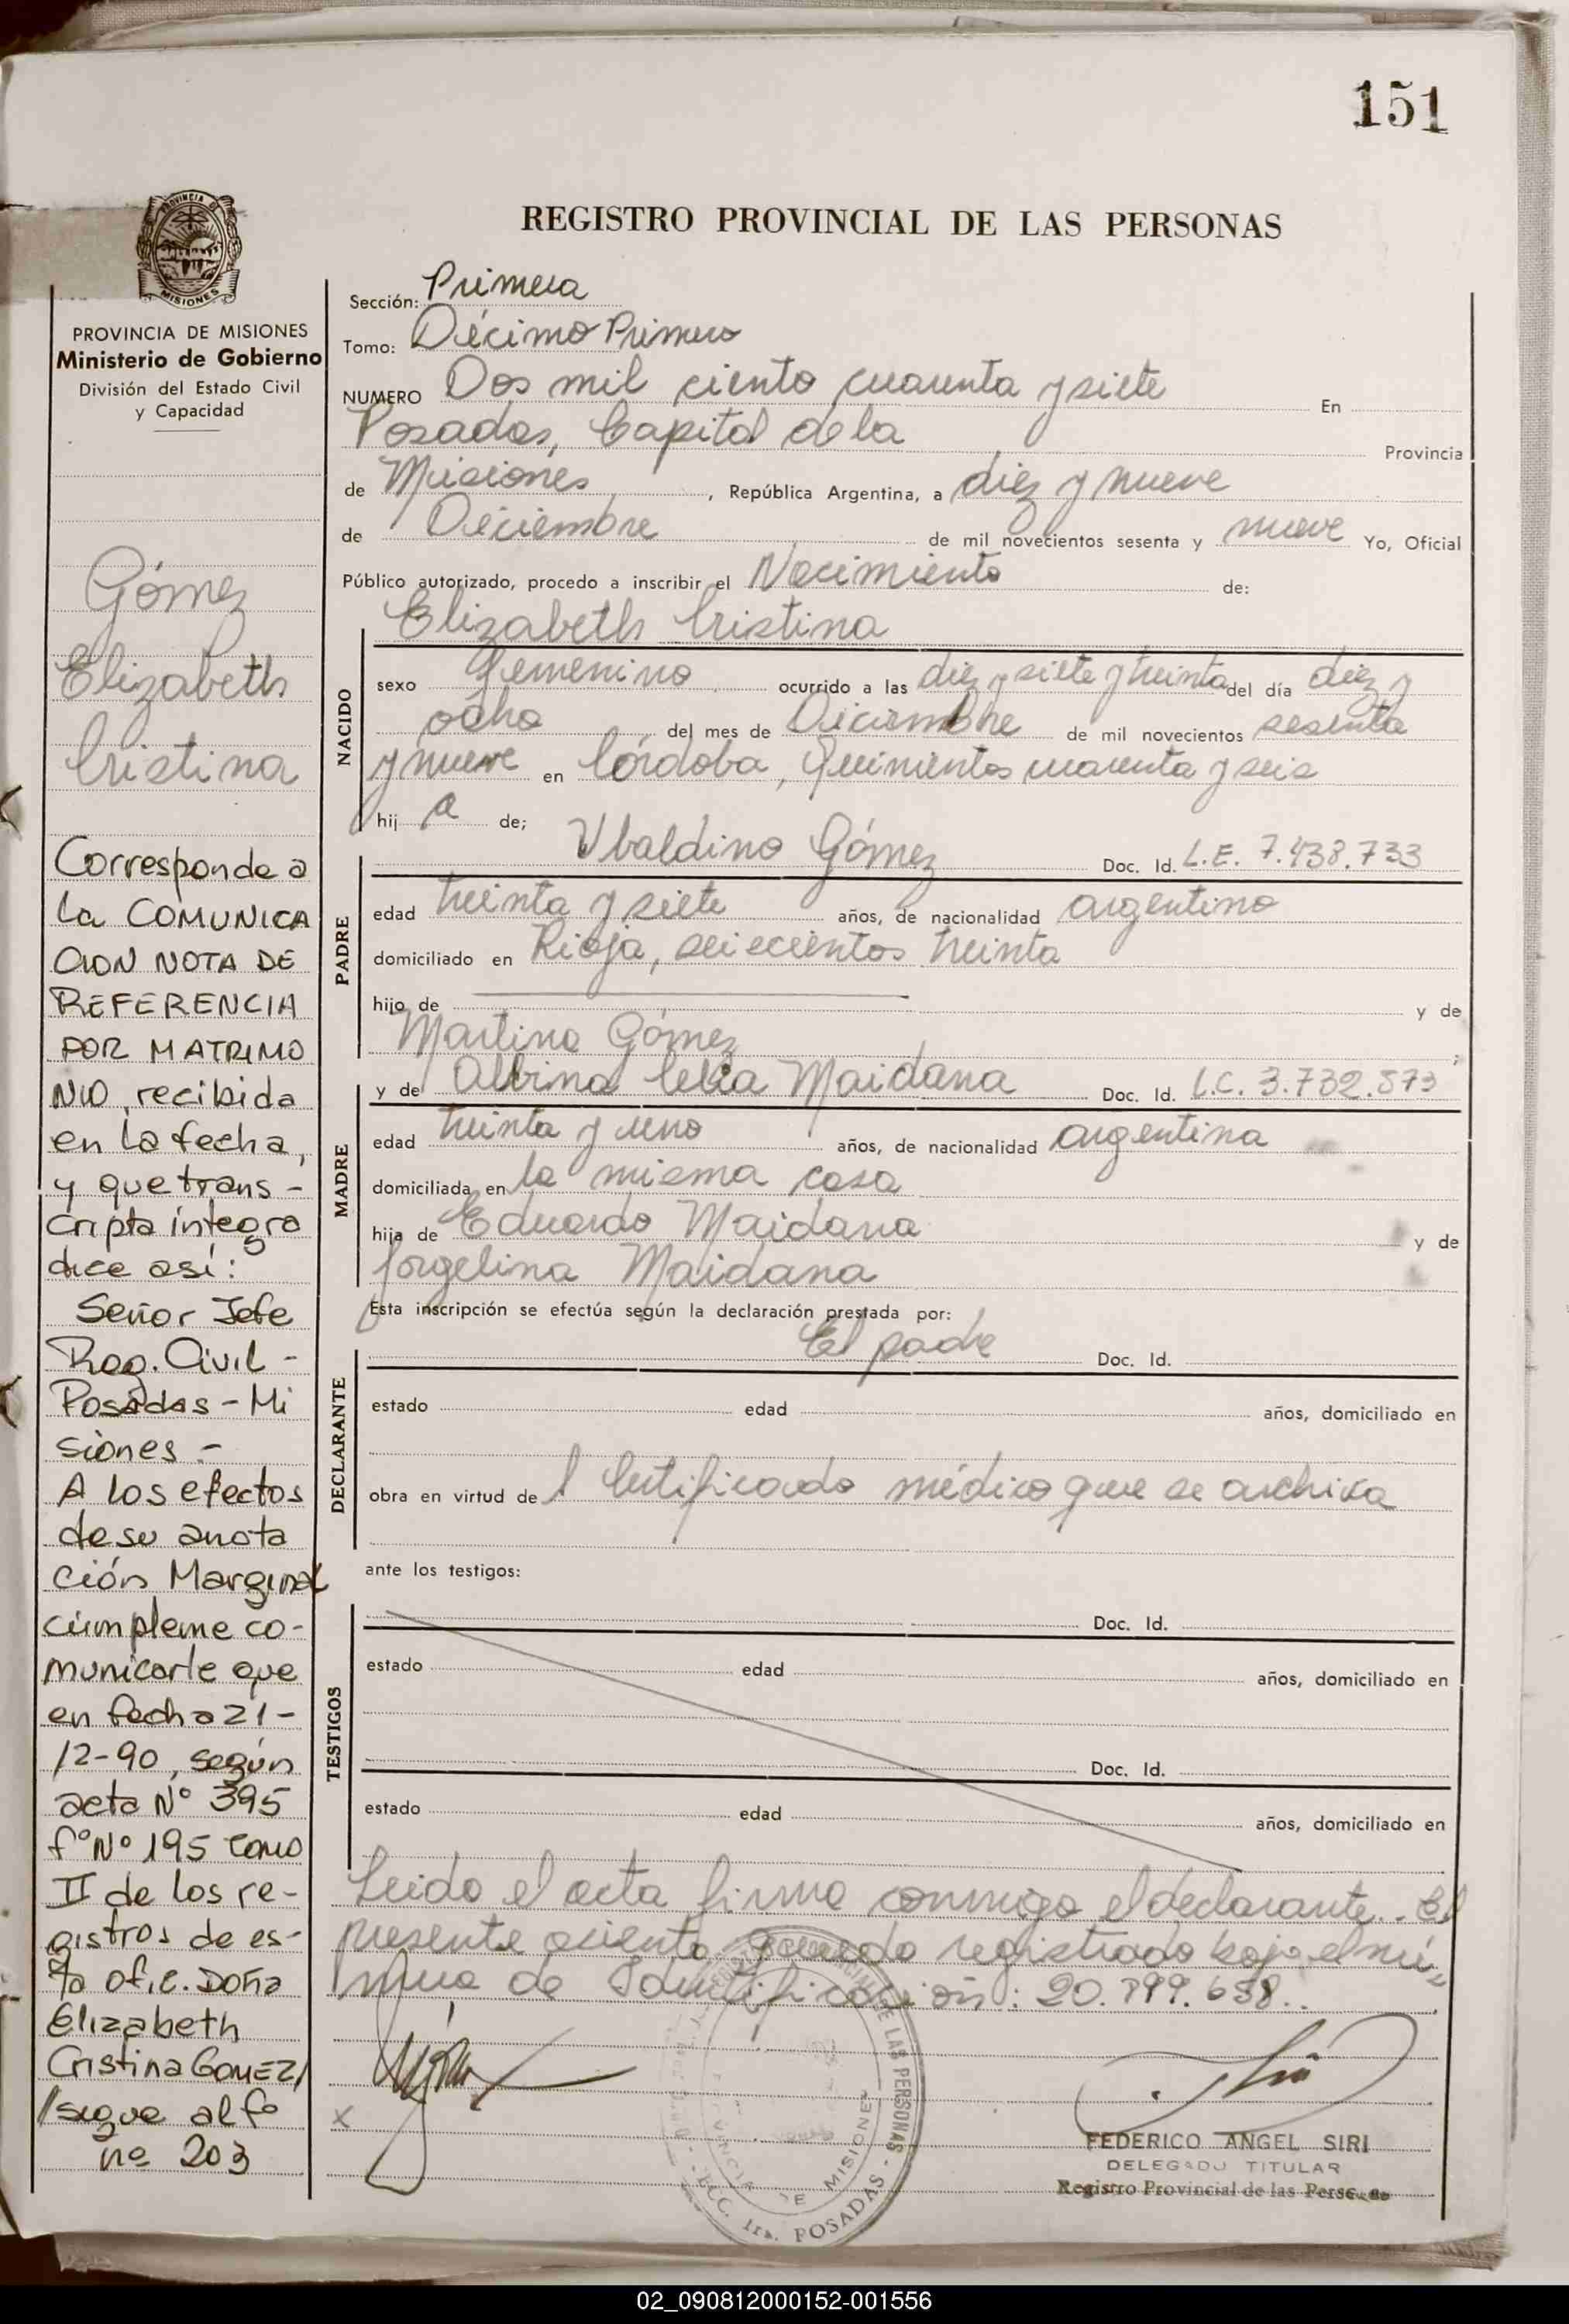 151
REGISTRO PROVINCIAL DE LAS PERSONAS
PROVINCIA DE MISIONES
MISIONES
PROVINCIA DE MISIONES
Ministerio de Gobierno
División del Estado Civil
y Capacidad
Gómez
Elizabeth
Cristina
Corresponde a
la COMUNICA
CION NOTA DE
REFERENCIA
POR MATRIMO
NIO, recibida
en la fecha,
y que trans-
cripta íntegra
dice así:
Señor Jefe
Reg. Civil -
Posadas - Mi
siones -
A los efectos
de su anota
ción Marginal
cúmpleme co-
municarle que
en fecha 21-
12-90, según
acta Nº 395
fº Nº 195 Tomo
II de los re-
gistros de es-
ta Ofic. DOÑA
Elizabeth
Cristina GOMEZ/
/sigue al fº
nº 203
Sección: Primera
Tomo: Décimo Primero
NUMERO Dos mil ciento cuarenta y siete En
Posadas, Capital de la Provincia
de Misiones, República Argentina, a diez y nueve
de Diciembre de mil novecientos sesenta y nueve Yo, Oficial
Público autorizado, procedo a inscribir el Nacimiento de:
Elizabeth Cristina
NACIDO
sexo femenino ocurrido a las diez y siete y treinta del día diez y
ocho del mes de Diciembre de mil novecientos sesenta
y nueve en Córdoba, Quinientos cuarenta y seis
hija de;
PADRE
Ubaldino Gómez Doc. Id. L.E. 7.438.733
edad treinta y siete años, de nacionalidad argentino
domiciliado en Rioja, seiscientos treinta
hijo de y de
Martina Gómez
MADRE
y de Albina Celia Maidana Doc. Id. L.C. 3.732.573
edad treinta y uno años, de nacionalidad argentina
domiciliada en la misma casa
hija de Eduardo Maidana y de
Jorgelina Maidana
Esta inscripción se efectúa según la declaración prestada por:
DECLARANTE
El padre Doc. Id.
estado edad años, domiciliado en
obra en virtud del Certificado médico que se archiva
ante los testigos:
TESTIGOS
Doc. Id.
estado edad años, domiciliado en
Doc. Id.
estado edad años, domiciliado en
Leido el acta firma conmigo el declarante.. El
presente asiento quedo registrado bajo el nú
mero de Identificación: 20.799.658..
x
DE LAS PERSONAS
PROVINCIA DE MISIONES
POSADAS
FEDERICO ANGEL SIRI
DELEGADO TITULAR
Registro Provincial de las Personas
02_090812000152-001556